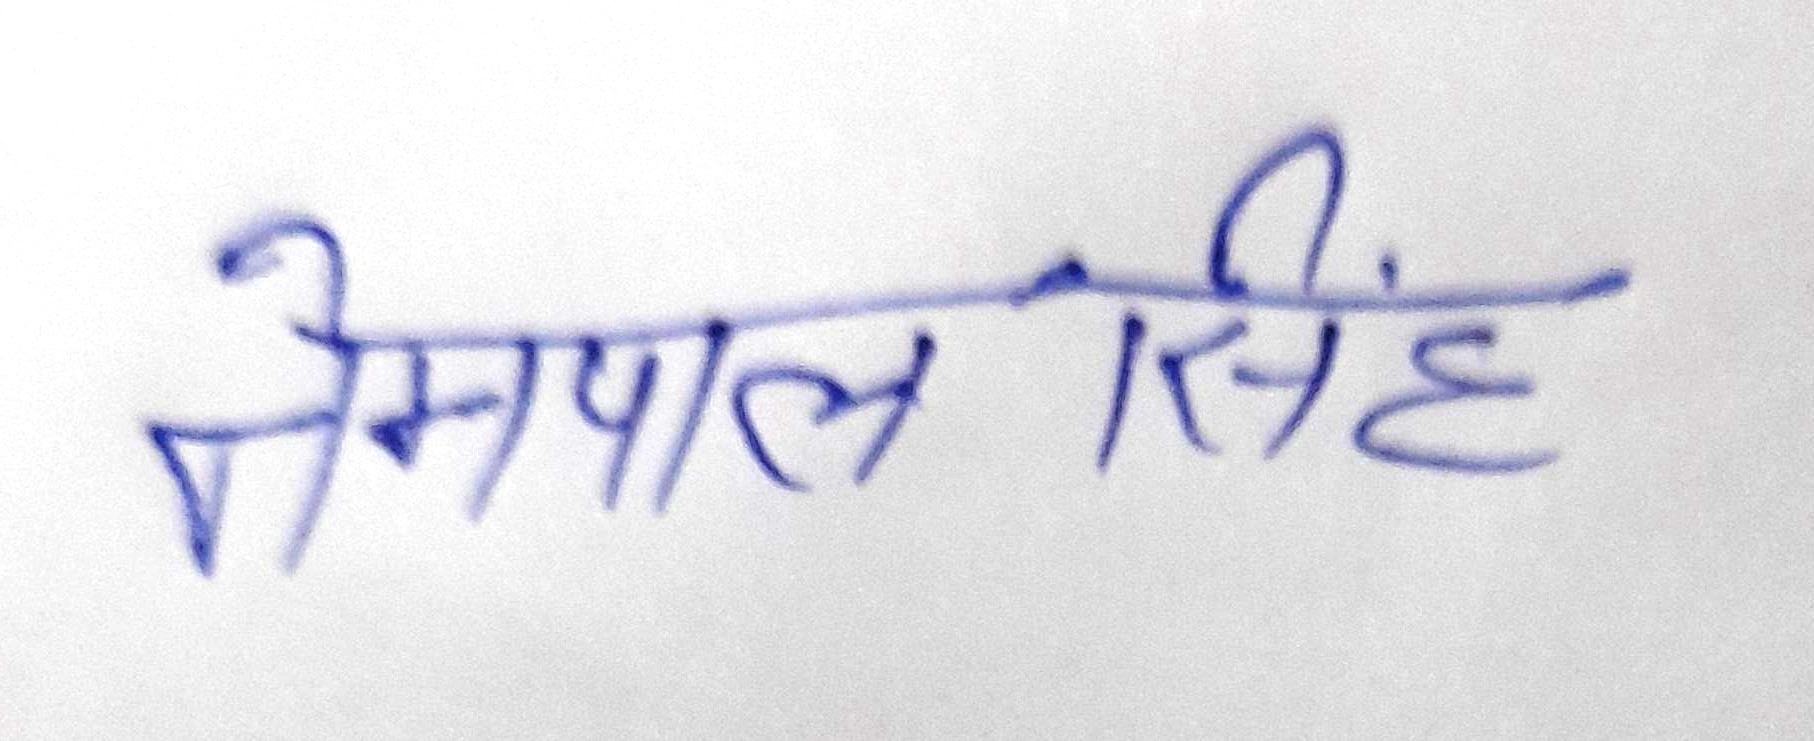 नेमपाल सिंह